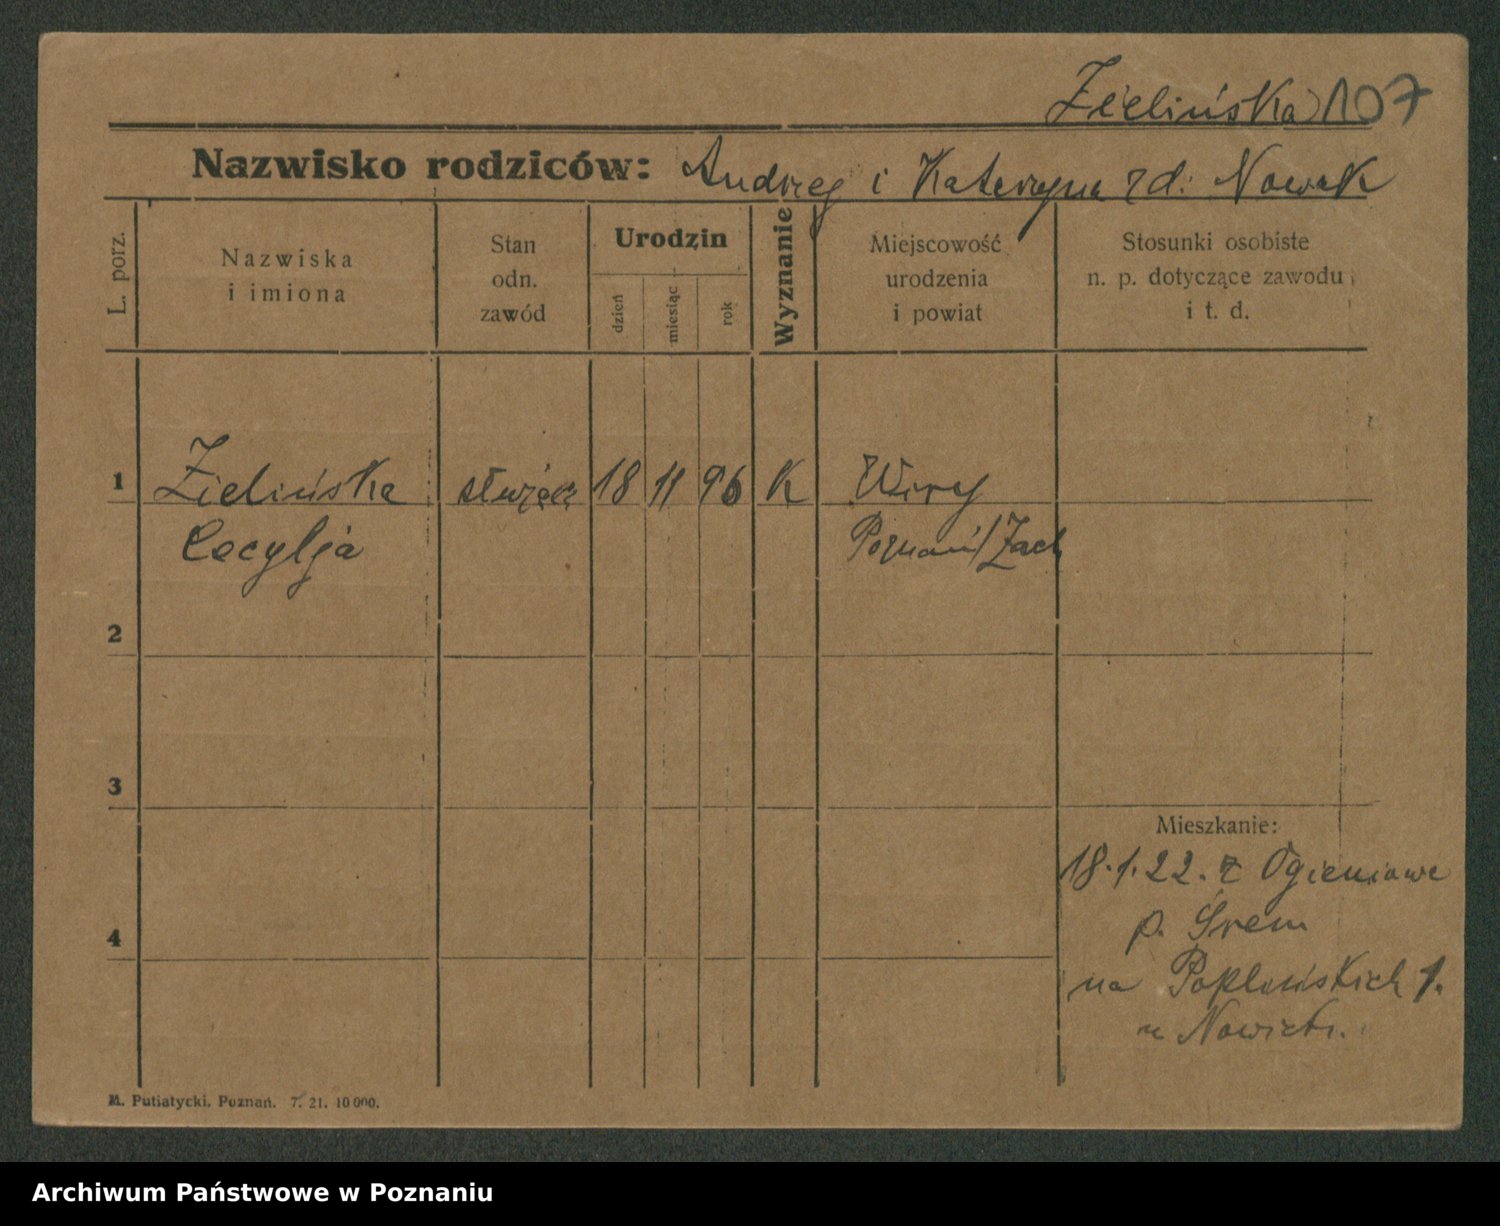 Zielińska 107
Nazwisko rodziców: Andrzej i Katarzyna zd: Nowak
L. porz.
Nazwiska
i imiona
Stan
odn.
zawód
Urodzin
dzień
miesiąc
rok
Wyznanie
Miejscowość
urodzenia
i powiat
Stosunki osobiste
n. p. dotyczące zawodu
i t. d.
1 Zielińska służąca 18 11 96 K Wiry
Cecylja Poznań/Zach
2
3
Mieszkanie:
18.1.22. z
p. Śrem
4
na 1.
u
M. Putiatycki, Poznań. 7. 21. 10 000.
Archiwum Państwowe w Poznaniu